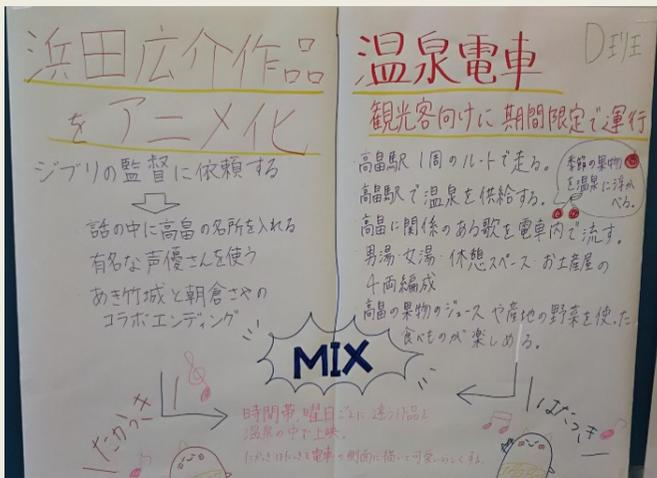 浜田広介作品
をアニメ化
ジブリの監督に依頼する
話の中に高畠の名所を入れる
有名な声優さんを使う
あき竹城と朝倉さやの
コラボエンディング
D班
温泉電車
観光客向けに期間限定で運行
高畠駅1周のルートで走る。
季節の果物
を温泉に浮か
べる。
高畠駅で温泉を供給する。
高畠に関係のある歌を電車内で流す。
男湯・女湯・休憩スペース・お土産屋の
4両編成
高畠の果物のジュースや産地の野菜を使った
食べものが楽しめる。
MIX
時間帯、曜日ごとに違う作品を
温泉の中で上映。
たかっきはたっきを電車の側面に描いて可愛いらしくする。
たかっき
はたっき